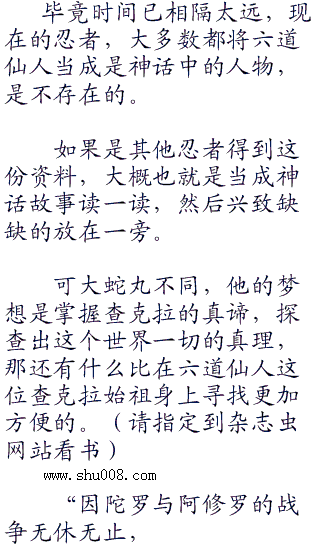 毕竟时间已相隔太远，现
在的忍者，大多数都将六道
仙人当成是神话中的人物，
是不存在的。
如果是其他忍者得到这
份资料，大概也就是当成神
话故事读一读，然后兴致缺
缺的放在一旁。
可大蛇丸不同，他的梦
想是掌握查克拉的真谛，探
查出这个世界一切的真理，
那还有什么比在六道仙人这
位查克拉始祖身上寻找更加
方便的。（请指定到杂志虫
网站看书）
www.shu008.com
“因陀罗与阿修罗的战
争无休无止，